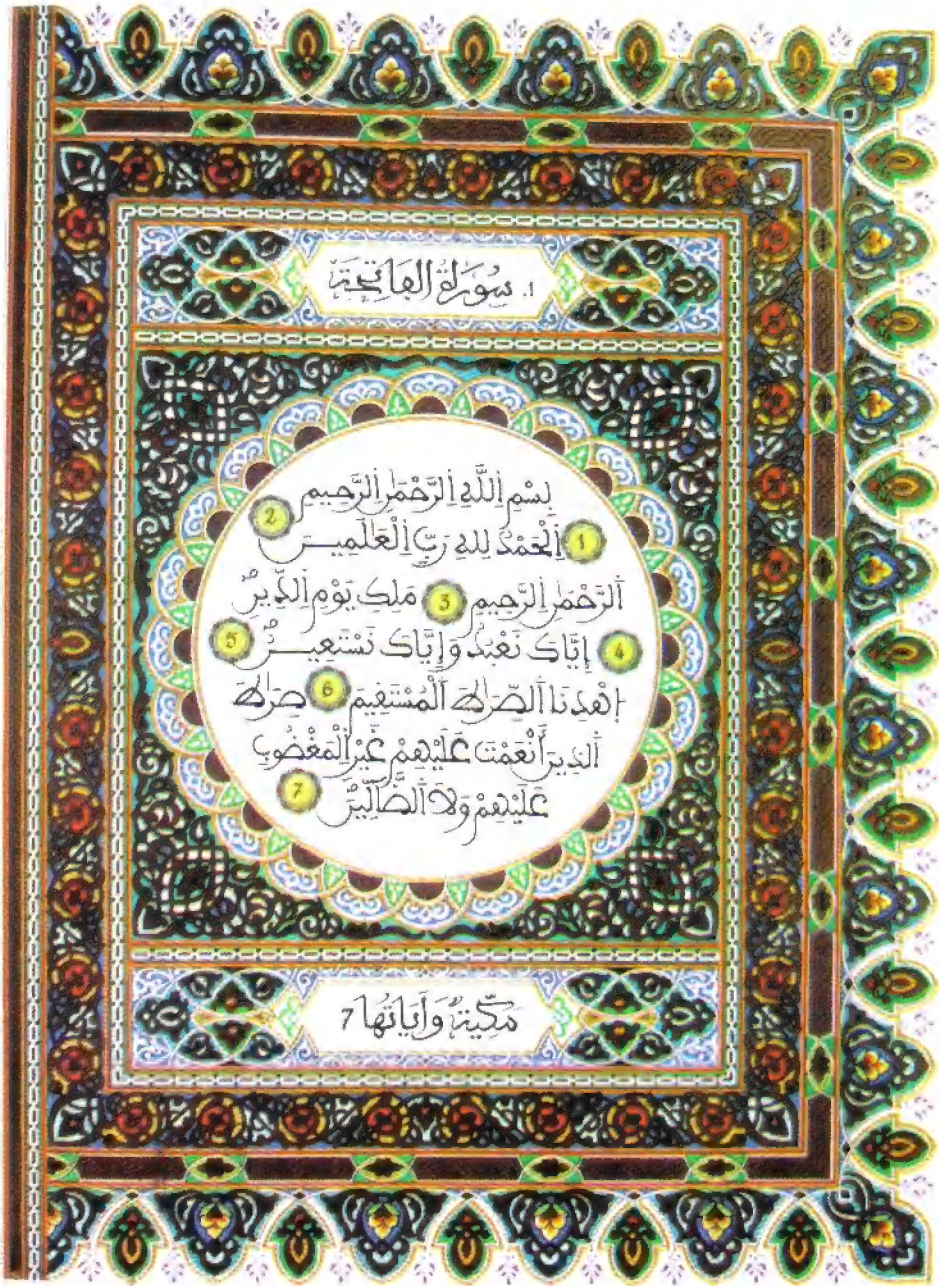 1. سُورَةُ الفَاتِحَة
بِسْمِ اِللَّهِ اِلرَّحْمَٰنِ اِلرَّحِيمِ
1 اَلْحَمْدُ لِلهِ رَبِّ اِلْعَٰلَمِينَ 2
اَلرَّحْمَٰنِ اِلرَّحِيمِ 3 مَلِكِ يَوْمِ اِلدِّينِ
4 إِيَّاكَ نَعْبُدُ وَإِيَّاكَ نَسْتَعِينُ 5
اِهْدِنَا اَلصِّرَٰطَ اَلْمُسْتَقِيمَ 6 صِرَٰطَ
اَلذِينَ أَنْعَمْتَ عَلَيْهِمْ غَيْرِ اِلْمَغْضُوبِ
عَلَيْهِمْ وَلَا اَلضَّآلِّينَ 7
مَكِّيَةٌ وَآيَاتُهَا 7